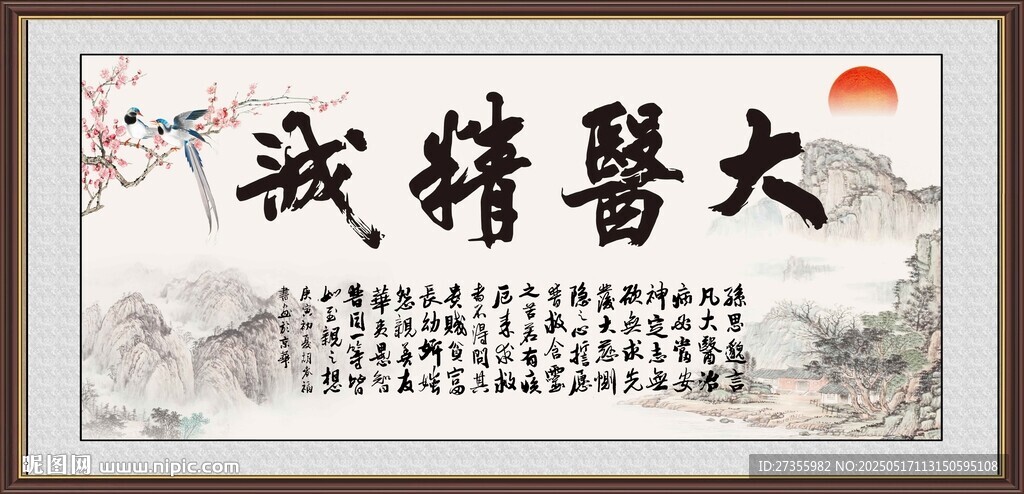 大醫精誠
孫思邈言
凡大醫治
病必當安
神定志無
欲無求先
發大慈惻
隐之心誓愿
普救含靈
之苦若有疾
厄来求救
者不得問其
貴賤貧富
長幼妍媸
怨親善友
華夷愚智
普同一等皆
如至親之想
庚寅初夏胡福
書於京華
昵图网 www.nipic.com
ID:27355982 NO:20250517113150595108